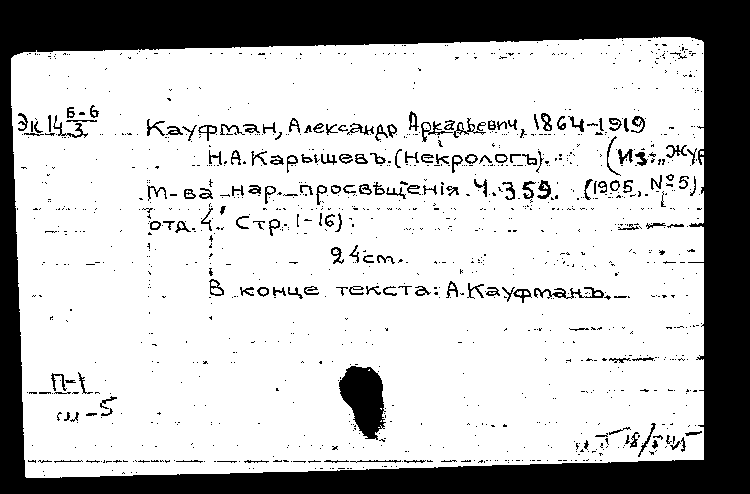 Эк 14 Б-6/3
Кауфман, Александр Аркадьевич, 1864-1919
Н.А. Карышевъ. (Некрологъ). (Из: „Жур
М-ва нар. просвѣщенія. Ч. 359. (1905, №5),
отд. 4. Стр. 1-16).
24cm.
В конце текста: А. Кауфманъ.
П-1
ш-5